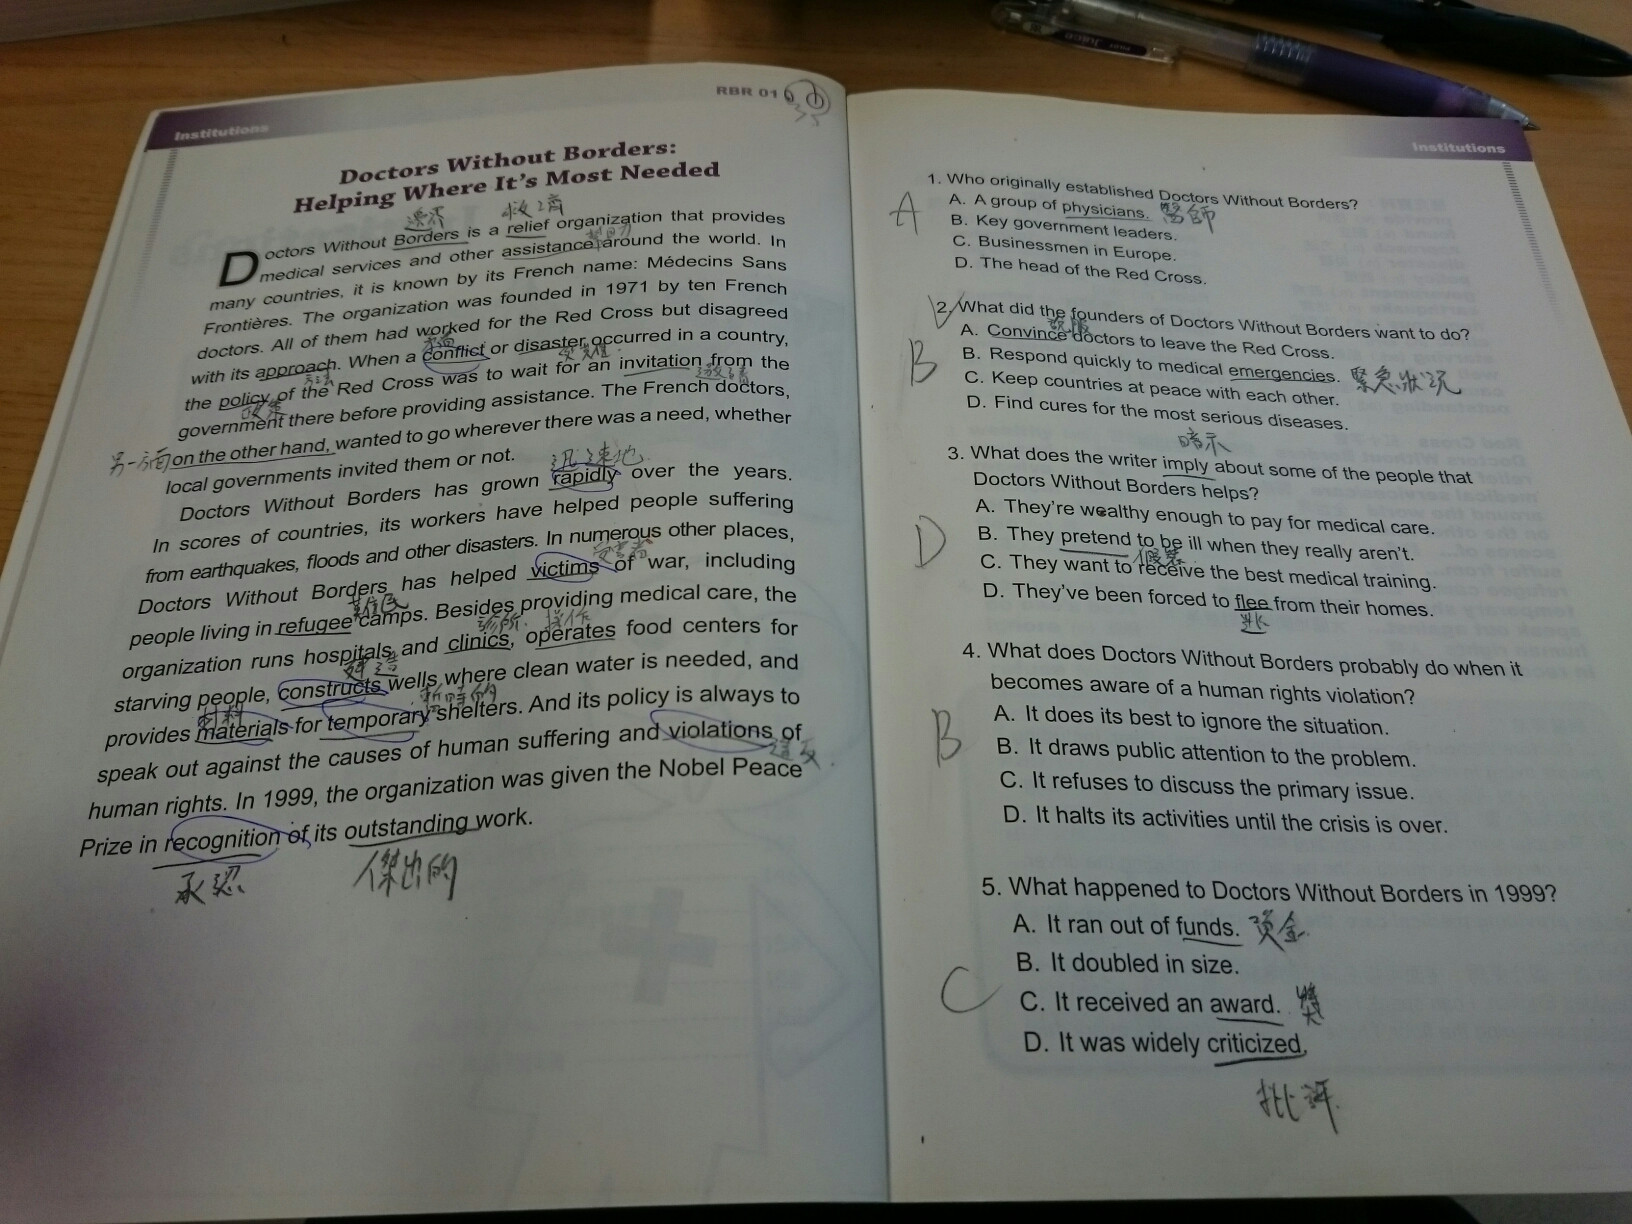 Institutions
RBR 01
Doctors Without Borders:
Helping Where It's Most Needed
邊界 救濟
Doctors Without Borders is a relief organization that provides
medical services and other assistance around the world. In
many countries, it is known by its French name: Médecins Sans
Frontières. The organization was founded in 1971 by ten French
doctors. All of them had worked for the Red Cross but disagreed
with its approach. When a conflict or disaster occurred in a country,
方法 邀請
the policy of the Red Cross was to wait for an invitation from the
政策
government there before providing assistance. The French doctors,
另一方面
on the other hand, wanted to go wherever there was a need, whether
local governments invited them or not.
迅速地
Doctors Without Borders has grown rapidly over the years.
In scores of countries, its workers have helped people suffering
from earthquakes, floods and other disasters. In numerous other places,
受害者
Doctors Without Borders has helped victims of war, including
難民
people living in refugee camps. Besides providing medical care, the
診所 操作
organization runs hospitals and clinics, operates food centers for
建造
starving people, constructs wells where clean water is needed, and
材料 暫時的
provides materials for temporary shelters. And its policy is always to
speak out against the causes of human suffering and violations of
違反
human rights. In 1999, the organization was given the Nobel Peace
Prize in recognition of its outstanding work.
承認 傑出的
Institutions
A
1. Who originally established Doctors Without Borders?
A. A group of physicians. 醫師
B. Key government leaders.
C. Businessmen in Europe.
D. The head of the Red Cross.
B
2. What did the founders of Doctors Without Borders want to do?
說服
A. Convince doctors to leave the Red Cross.
B. Respond quickly to medical emergencies. 緊急狀況
C. Keep countries at peace with each other.
D. Find cures for the most serious diseases.
暗示
D
3. What does the writer imply about some of the people that
Doctors Without Borders helps?
A. They're wealthy enough to pay for medical care.
B. They pretend to be ill when they really aren't.
假裝
C. They want to receive the best medical training.
D. They've been forced to flee from their homes.
逃
B
4. What does Doctors Without Borders probably do when it
becomes aware of a human rights violation?
A. It does its best to ignore the situation.
B. It draws public attention to the problem.
C. It refuses to discuss the primary issue.
D. It halts its activities until the crisis is over.
C
5. What happened to Doctors Without Borders in 1999?
A. It ran out of funds. 資金
B. It doubled in size.
C. It received an award. 獎
D. It was widely criticized.
批評